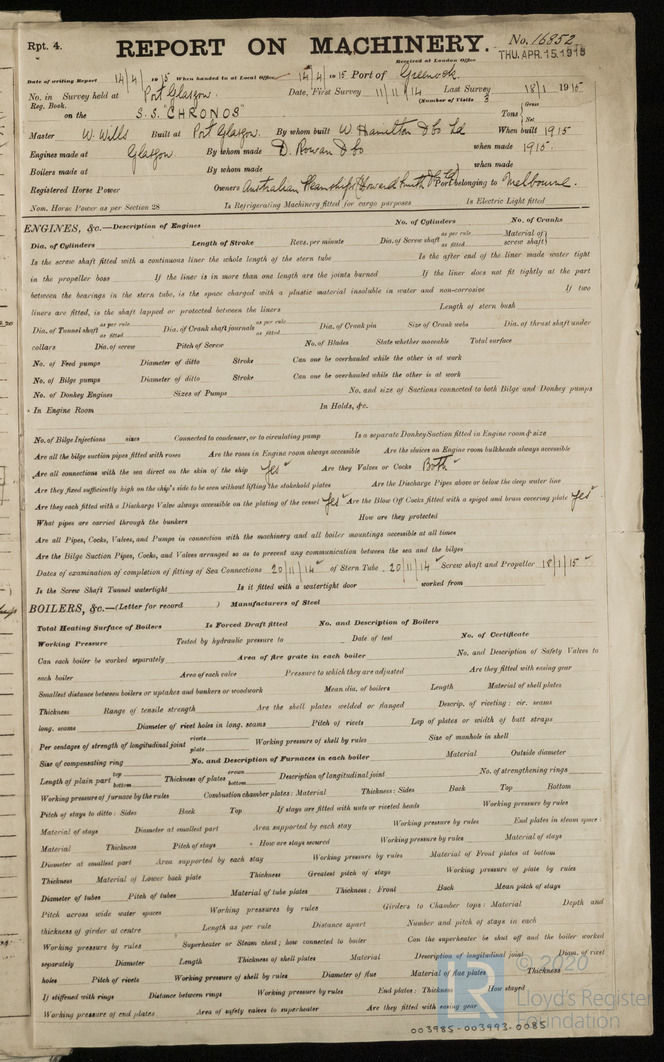 Rpt. 4. REPORT ON MACHINERY. No. 16852
Received at London Office THU. APR. 15. 1915
Date of writing Report 14/4/1915 When handed in at Local Office 14/4/1915 Port of Greenock.
No. in Survey held at Port Glasgow. Date, First Survey 11/11/14 Last Survey 18/1 1915
Reg. Book. (Number of Visits 3
on the S.S. "CHRONOS" Tons { Gross Net
Master W. Wills Built at Port Glasgow. By whom built W. Hamilton & Co Ld When built 1915
Engines made at Glasgow By whom made D. Rowan & Co when made 1915.
Boilers made at By whom made when made
Registered Horse Power Owners Australian Steamships (Howard Smith & Co Ld) Port belonging to Melbourne.
Nom. Horse Power as per Section 28 Is Refrigerating Machinery fitted for cargo purposes Is Electric Light fitted
ENGINES, &c.—Description of Engines No. of Cylinders No. of Cranks
Dia. of Cylinders Length of Stroke Revs. per minute Dia. of Screw shaft as per rule as fitted Material of screw shaft
Is the screw shaft fitted with a continuous liner the whole length of the stern tube Is the after end of the liner made water tight
in the propeller boss If the liner is in more than one length are the joints burned If the liner does not fit tightly at the part
between the bearings in the stern tube, is the space charged with a plastic material insoluble in water and non-corrosive If two
liners are fitted, is the shaft lapped or protected between the liners Length of stern bush
Dia. of Tunnel shaft as per rule as fitted Dia. of Crank shaft journals as per rule as fitted Dia. of Crank pin Size of Crank webs Dia. of thrust shaft under
collars Dia. of screw Pitch of Screw No. of Blades State whether moveable Total surface
No. of Feed pumps Diameter of ditto Stroke Can one be overhauled while the other is at work
No. of Bilge pumps Diameter of ditto Stroke Can one be overhauled while the other is at work
No. of Donkey Engines Sizes of Pumps No. and size of Suctions connected to both Bilge and Donkey pumps
In Engine Room In Holds, &c.
No. of Bilge Injections sizes Connected to condenser, or to circulating pump Is a separate Donkey Suction fitted in Engine room & size
Are all the bilge suction pipes fitted with roses Are the roses in Engine room always accessible Are the sluices on Engine room bulkheads always accessible
Are all connections with the sea direct on the skin of the ship Yes Are they Valves or Cocks Both
Are they fixed sufficiently high on the ship's side to be seen without lifting the stokehold plates Are the Discharge Pipes above or below the deep water line
Are they each fitted with a Discharge Valve always accessible on the plating of the vessel Yes Are the Blow Off Cocks fitted with a spigot and brass covering plate Yes.
What pipes are carried through the bunkers How are they protected
Are all Pipes, Cocks, Valves, and Pumps in connection with the machinery and all boiler mountings accessible at all times
Are the Bilge Suction Pipes, Cocks, and Valves arranged so as to prevent any communication between the sea and the bilges
Dates of examination of completion of fitting of Sea Connections 20/11/14 of Stern Tube 20/11/14 Screw shaft and Propeller 18/1/15
Is the Screw Shaft Tunnel watertight Is it fitted with a watertight door worked from
BOILERS, &c.—(Letter for record ) Manufacturers of Steel
Total Heating Surface of Boilers Is Forced Draft fitted No. and Description of Boilers
Working Pressure Tested by hydraulic pressure to Date of test No. of Certificate
Can each boiler be worked separately Area of fire grate in each boiler No. and Description of Safety Valves to
each boiler Area of each valve Pressure to which they are adjusted Are they fitted with easing gear
Smallest distance between boilers or uptakes and bunkers or woodwork Mean dia. of boilers Length Material of shell plates
Thickness Range of tensile strength Are the shell plates welded or flanged Descrip. of riveting: cir. seams
long. seams Diameter of rivet holes in long. seams Pitch of rivets Lap of plates or width of butt straps
Per centages of strength of longitudinal joint rivets plate Working pressure of shell by rules Size of manhole in shell
Size of compensating ring No. and Description of Furnaces in each boiler Material Outside diameter
Length of plain part top bottom Thickness of plates crown bottom Description of longitudinal joint No. of strengthening rings
Working pressure of furnace by the rules Combustion chamber plates: Material Thickness: Sides Back Top Bottom
Pitch of stays to ditto: Sides Back Top If stays are fitted with nuts or riveted heads Working pressure by rules
Material of stays Diameter at smallest part Area supported by each stay Working pressure by rules End plates in steam space:
Material Thickness Pitch of stays How are stays secured Working pressure by rules Material of stays
Diameter at smallest part Area supported by each stay Working pressure by rules Material of Front plates at bottom
Thickness Material of Lower back plate Thickness Greatest pitch of stays Working pressure of plate by rules
Diameter of tubes Pitch of tubes Material of tube plates Thickness: Front Back Mean pitch of stays
Pitch across wide water spaces Working pressures by rules Girders to Chamber tops: Material Depth and
thickness of girder at centre Length as per rule Distance apart Number and pitch of stays in each
Working pressure by rules Superheater or Steam chest; how connected to boiler Can the superheater be shut off and the boiler worked
separately Diameter Length Thickness of shell plates Material Description of longitudinal joint Diam. of rivet
holes Pitch of rivets Working pressure of shell by rules Diameter of flue Material of flue plates Thickness
If stiffened with rings Distance between rings Working pressure by rules End plates: Thickness How stayed
Working pressure of end plates Area of safety valves to superheater Are they fitted with easing gear
© 2020
Lloyd's Register
Foundation
003985-003993-0085